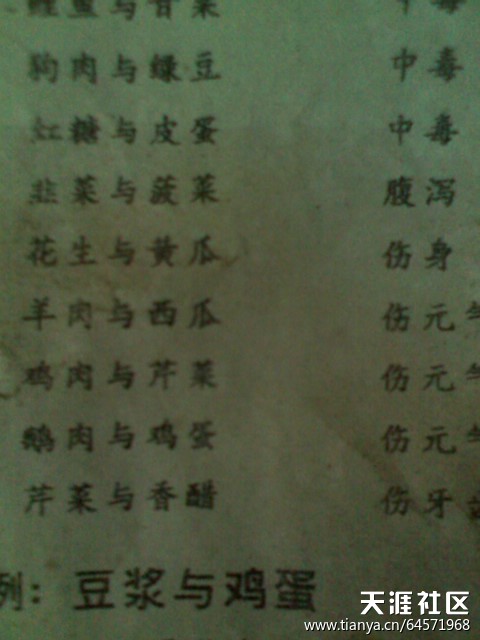 鲤鱼与甘菜 中毒
狗肉与绿豆 中毒
红糖与皮蛋 中毒
韭菜与菠菜 腹泻
花生与黄瓜 伤身
羊肉与西瓜 伤元气
鸡肉与芹菜 伤元气
鹅肉与鸡蛋 伤元气
芹菜与香醋 伤牙
例：豆浆与鸡蛋
天涯社区
www.tianya.cn/64571968